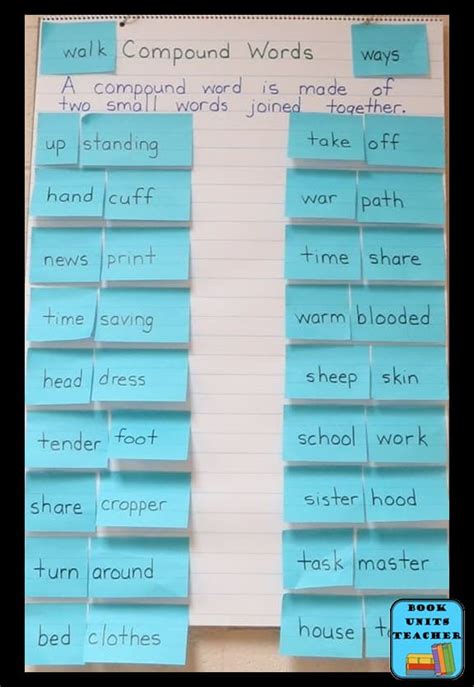 walk Compound Words ways
A compound word is made of
two small words joined together.
up standing
hand cuff
news print
time saving
head dress
tender foot
share cropper
turn around
bed clothes
take off
war path
time share
warm blooded
sheep skin
school work
sister hood
task master
house
BOOK
UNITS
TEACHER